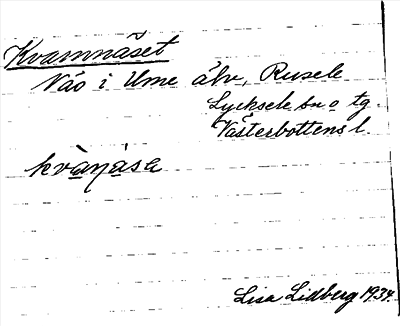 Kvarnnäset
Näs i Ume älv, Rusele
Lycksele sn o tg.
Västerbottens l.
kvàṇá̀sa
Lisa Lidberg 1934.